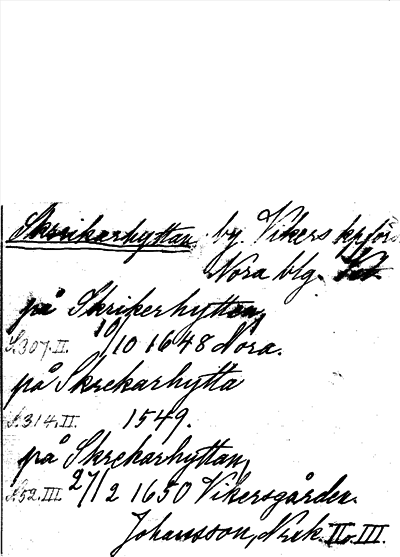 Skrikarhyttan, by. Vikers kpförs
Nora blg.
på Skrikerhyttan,
S.307.II. 10/10 1648 Nora.
på Skrekarhytta
S.314.II. 1549.
på Skrekarhyttan,
S.52.III. 27/2 1650 Vikersgården.
Johansson, Nrek. II o. III.